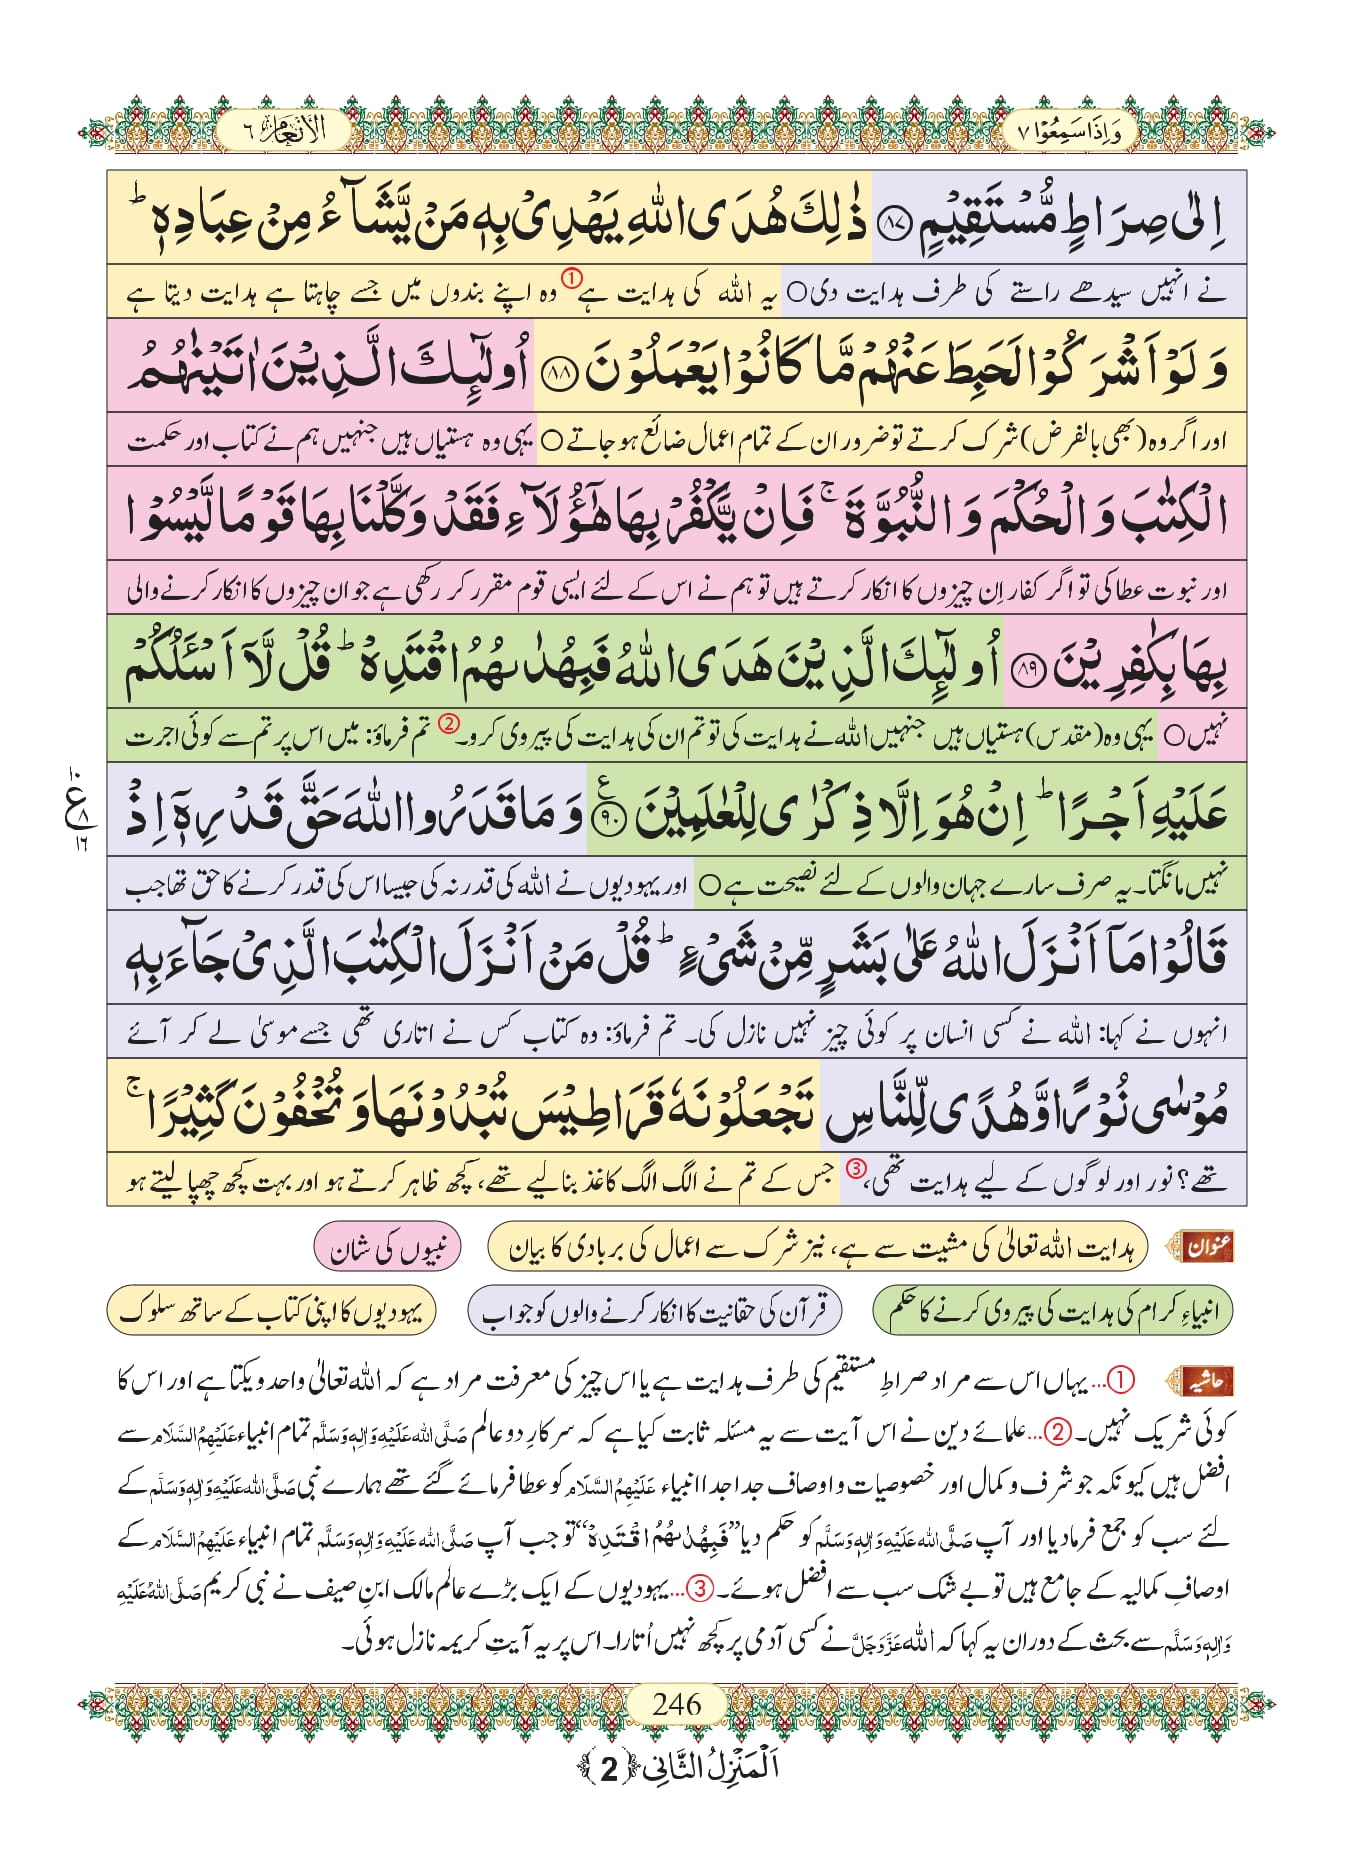 وَاِذَاسَمِعُوْا ٧
الأنعام ٦
اِلٰى صِرَاطٍ مُّسْتَقِیْمٍ ﴿٨٧﴾ ذٰلِكَ هُدَى اللّٰهِ یَهْدِیْ بِهٖ مَنْ یَّشَآءُ مِنْ عِبَادِهٖؕ
نے انہیں سیدھے راستے کی طرف ہدایت دی○ یہ اللہ کی ہدایت ہے① وہ اپنے بندوں میں جسے چاہتا ہے ہدایت دیتا ہے
وَ لَوْ اَشْرَكُوْا لَحَبِطَ عَنْهُمْ مَّا كَانُوْا یَعْمَلُوْنَ ﴿٨٨﴾ اُولٰٓىٕكَ الَّذِیْنَ اٰتَیْنٰهُمُ
اور اگر وہ (بھی بالفرض) شرک کرتے تو ضرور ان کے تمام اعمال ضائع ہو جاتے○ یہی وہ ہستیاں ہیں جنہیں ہم نے کتاب اور حکمت
الْكِتٰبَ وَ الْحُكْمَ وَ النُّبُوَّةَۚ فَاِنْ یَّكْفُرْ بِهَا هٰۤؤُلَآءِ فَقَدْ وَكَّلْنَا بِهَا قَوْمًا لَّیْسُوْا
اور نبوت عطا کی تو اگر کفار اِن چیزوں کا انکار کرتے ہیں تو ہم نے اس کے لئے ایسی قوم مقرر کر رکھی ہے جو ان چیزوں کا انکار کرنے والی
بِهَا بِكٰفِرِیْنَ ﴿٨٩﴾ اُولٰٓىٕكَ الَّذِیْنَ هَدَى اللّٰهُ فَبِهُدٰىهُمُ اقْتَدِهْؕ قُلْ لَّاۤ اَسْــٴَـلُكُمْ
نہیں○ یہی وہ (مقدس) ہستیاں ہیں جنہیں اللہ نے ہدایت کی تو تم ان کی ہدایت کی پیروی کرو۔② تم فرماؤ: میں اس پر تم سے کوئی اجرت
عَلَیْهِ اَجْرًاؕ اِنْ هُوَ اِلَّا ذِكْرٰى لِلْعٰلَمِیْنَ ﴿٩٠﴾ع وَ مَا قَدَرُوا اللّٰهَ حَقَّ قَدْرِهٖۤ اِذْ
١٠ ع ٨ ١٦
نہیں مانگتا۔ یہ صرف سارے جہان والوں کے لئے نصیحت ہے○ اور یہودیوں نے اللہ کی قدر نہ کی جیسا اس کی قدر کرنے کا حق تھا جب
قَالُوْا مَاۤ اَنْزَلَ اللّٰهُ عَلٰى بَشَرٍ مِّنْ شَیْءٍؕ قُلْ مَنْ اَنْزَلَ الْكِتٰبَ الَّذِیْ جَآءَ بِهٖ
انہوں نے کہا: اللہ نے کسی انسان پر کوئی چیز نہیں نازل کی۔ تم فرماؤ: وہ کتاب کس نے اتاری تھی جسے موسیٰ لے کر آئے
مُوْسٰى نُوْرًا وَّ هُدًى لِّلنَّاسِ تَجْعَلُوْنَهٗ قَرَاطِیْسَ تُبْدُوْنَهَا وَ تُخْفُوْنَ كَثِیْرًاۚ
تھے؟ نور اور لوگوں کے لیے ہدایت تھی،③ جس کے تم نے الگ الگ کاغذ بنا لیے تھے، کچھ ظاہر کرتے ہو اور بہت کچھ چھپا لیتے ہو
عنوان ہدایت اللہ تعالیٰ کی مشیت سے ہے، نیز شرک سے اعمال کی بربادی کا بیان نبیوں کی شان
انبیاءِ کرام کی ہدایت کی پیروی کرنے کا حکم قرآن کی حقانیت کا انکار کرنے والوں کو جواب یہودیوں کا اپنی کتاب کے ساتھ سلوک
حاشیہ ①...یہاں اس سے مراد صراطِ مستقیم کی طرف ہدایت ہے یا اس چیز کی معرفت مراد ہے کہ اللہ تعالیٰ واحد و یکتا ہے اور اس کا
کوئی شریک نہیں۔ ②...علمائے دین نے اس آیت سے یہ مسئلہ ثابت کیا ہے کہ سرکارِ دو عالم صَلَّى اللہ عَلَیْهِ وَاٰلِهٖ وَسَلَّم تمام انبیاء عَلَیْهِمُ السَّلَام سے
افضل ہیں کیونکہ جو شرف و کمال اور خصوصیات و اوصاف جدا جدا انبیاء عَلَیْهِمُ السَّلَام کو عطا فرمائے گئے تھے ہمارے نبی صَلَّى اللہ عَلَیْهِ وَاٰلِهٖ وَسَلَّم کے
لئے سب کو جمع فرما دیا اور آپ صَلَّى اللہ عَلَیْهِ وَاٰلِهٖ وَسَلَّم کو حکم دیا ”فَبِهُدٰىهُمُ اقْتَدِهْ“ تو جب آپ صَلَّى اللہ عَلَیْهِ وَاٰلِهٖ وَسَلَّم تمام انبیاء عَلَیْهِمُ السَّلَام کے
اوصافِ کمالیہ کے جامع ہیں تو بے شک سب سے افضل ہوئے۔ ③...یہودیوں کے ایک بڑے عالم مالک ابنِ صیف نے نبی کریم صَلَّى اللہُ عَلَیْهِ
وَاٰلِهٖ وَسَلَّم سے بحث کے دوران یہ کہا کہ اللہ عَزَّوَجَلَّ نے کسی آدمی پر کچھ نہیں اُتارا۔ اس پر یہ آیتِ کریمہ نازل ہوئی۔
246
اَلْمَنْزِلُ الثَّانِی ﴿2﴾